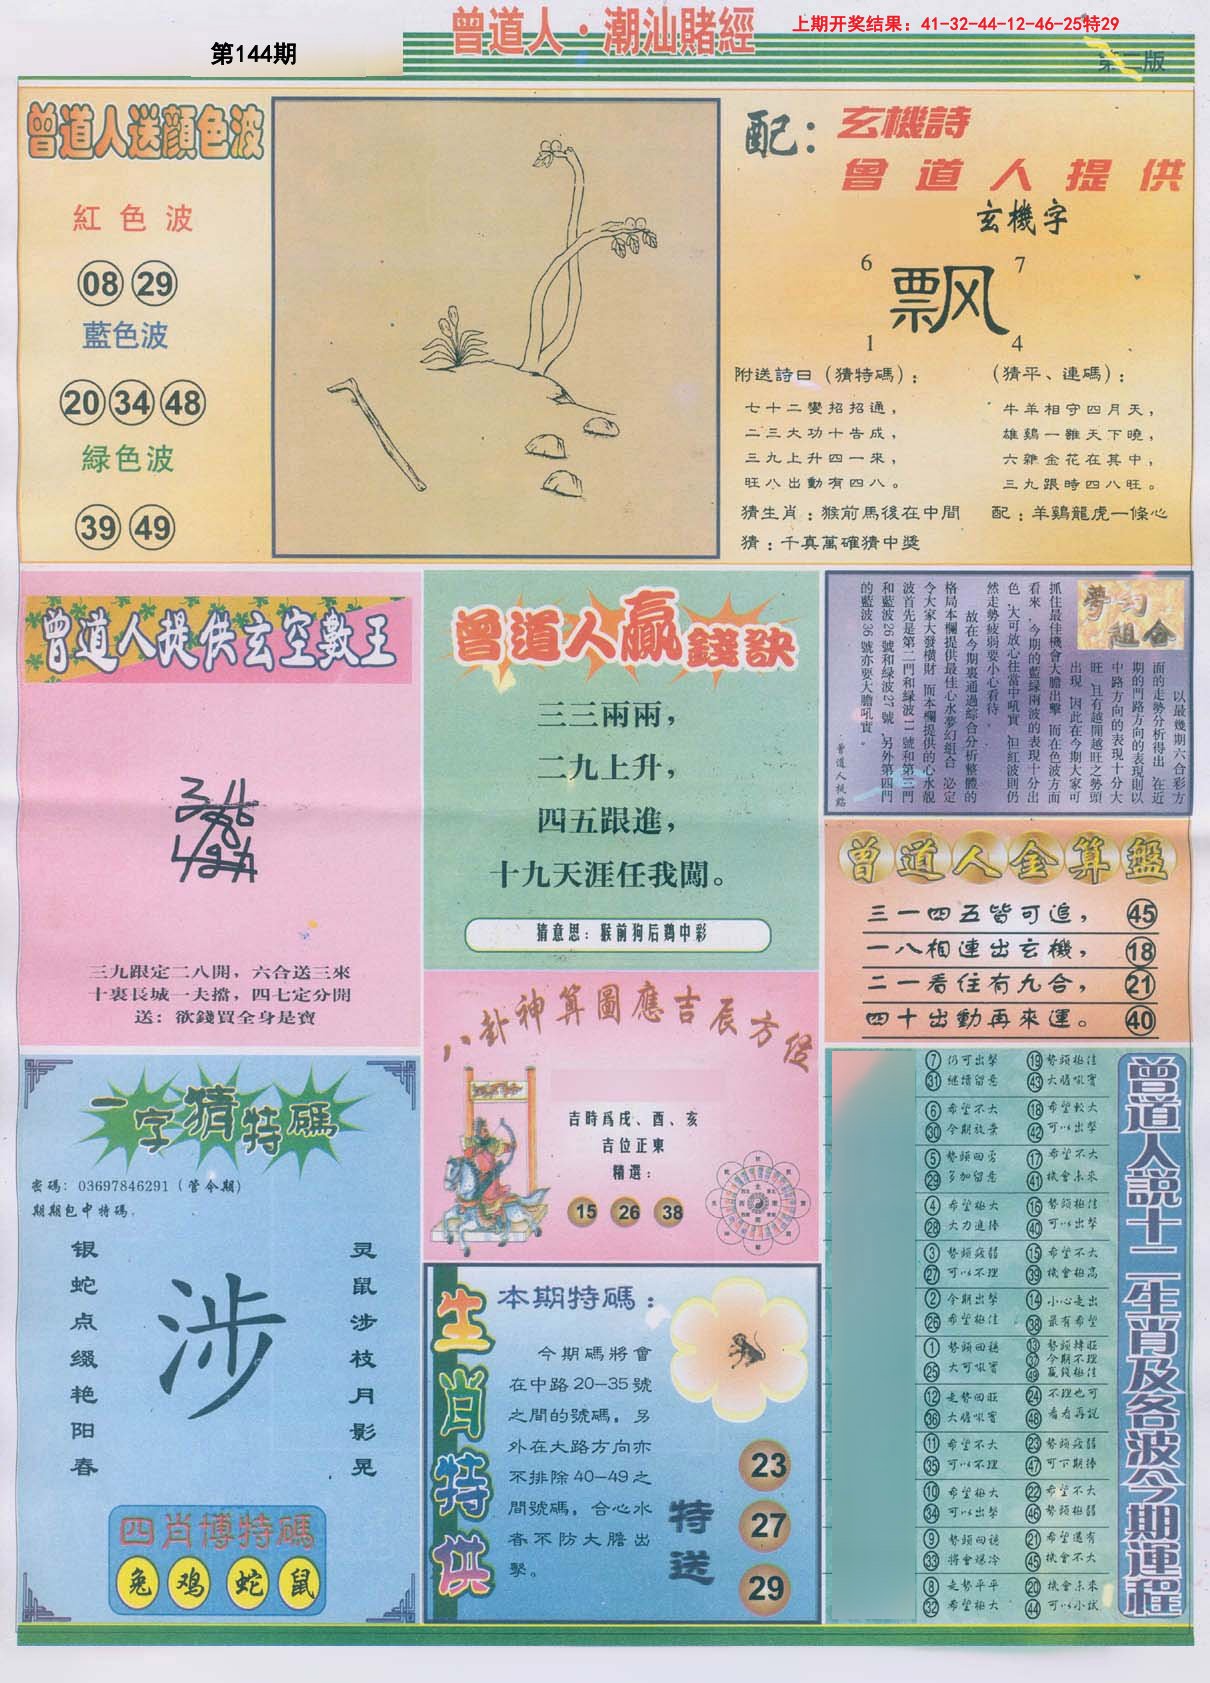 曾道人·潮汕賭經
上期开奖结果：41-32-44-12-46-25特29
第144期
第二版
曾道人送顔色波
紅色波
08 29
藍色波
20 34 48
緑色波
39 49
配：玄機詩
曾道人提供
玄機字
6 7
飘
1 4
附送詩曰（猜特碼）：
七十二變招招通，
二三大功十告成，
三九上升四一來，
旺八出動有四八。
猜生肖：猴前馬後在中間
猜：千真萬確猜中獎
（猜平、連碼）：
牛羊相守四月天，
雄鷄一雞天下曉，
六雜金花在其中，
三九跟時四八旺。
配：羊鷄龍虎一條心
曾道人提供玄空數王
三九跟定二八開，六合送三來
十裏長城一夫擋，四七定分開
送：欲錢買全身是寶
曾道人贏錢訣
三三兩兩，
二九上升，
四五跟進，
十九天涯任我闖。
猜意思：猴前狗后鷄中彩
夢幻組合
以最幾期六合彩方
面的走勢分析得出，在近
期的門路方向的表現則以
中路方向的表現十分大
旺，且有越開越旺之勢頭
出現，因此在今期大家可
抓住最佳機會大膽出擊，而在色波方面
看來，今期的藍緑兩波的表現十分出
色，大可放心住當中吼實，但紅波則仍
然走勢疲弱要小心看待。
故在今期裏通過綜合分析整體的
格局本欄提供最佳心水夢幻組合，必定
令大家大發橫財，而本欄提供的心水靚
波首先是第二門和緑波11號和第三門
和藍波26號和緑波27號，另外第四門
的藍波36號亦要大膽吼實。
曾道人提點
曾道人金算盤
三一四五皆可追， 45
一八相連出玄機， 18
二一看住有九合， 21
四十出動再來運。 40
八卦神算圖應吉辰方位
吉時爲戌、酉、亥
吉位正東
精選：
15 26 38
一字猜特碼
密碼：03697846291（管令期）
期期包中特碼。
银蛇点缀艳阳春
涉
灵鼠涉枝月影晃
四肖博特碼
兔 鸡 蛇 鼠
生肖特供
本期特碼：
今期碼將會
在中路20-35號
之間的號碼，另
外在大路方向亦
不排除40-49之
間號碼，合心水
者不防大膽出
擊。
特送
23
27
29
曾道人説十二生肖及各波今期運程
7 仍可出擊 19 勢頭極佳
31 繼續留意 43 大膽吼實
6 希望不大 18 希望較大
30 今期放棄 42 可以出擊
5 勢頭回勇 17 希望不大
29 多加留意 41 機會未來
4 希望極大 16 勢頭極佳
28 大力追捧 40 可以出擊
3 勢頭疲弱 15 希望不大
27 可以不理 39 機會極高
2 今期出擊 14 小心走出
26 希望極佳 38 最有希望
1 勢頭回穩 13 勢頭轉旺
37 今期不理
25 大可吼實 49 贏錢極佳
12 走勢回旺 24 不理也可
36 大膽吼實 48 看看再説
11 希望不大 23 勢頭疲弱
35 可以不理 47 可下期捧
10 希望極大 22 希望不大
34 可以出擊 46 勢頭極弱
9 勢頭回穩 21 希望還有
33 將會爆冷 45 機會不大
8 走勢平平 20 機會未來
32 希望極大 44 可以小試